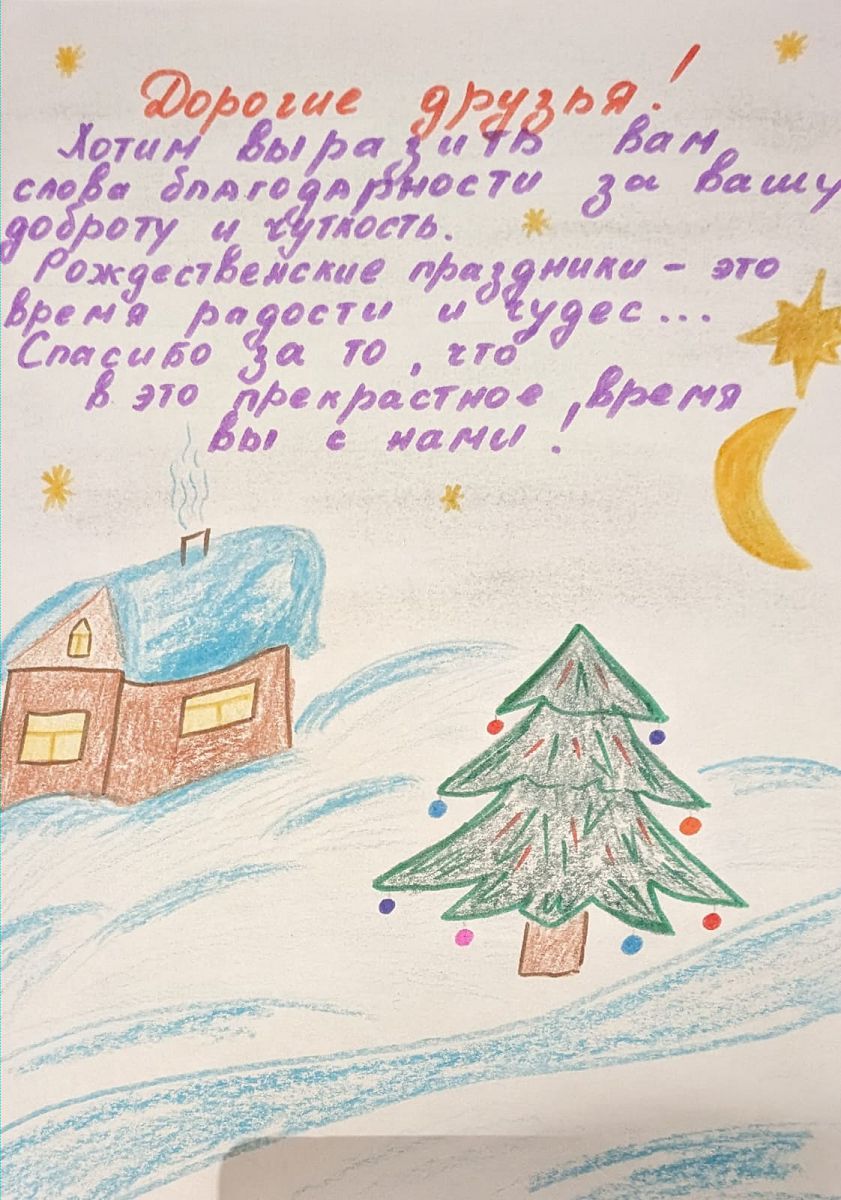 Дорогие друзья!
Хотим выразить вам
слова благодарности за вашу
доброту и чуткость.
Рождественские праздники - это
время радости и чудес...
Спасибо за то, что
в это прекрастное, время
вы с нами!